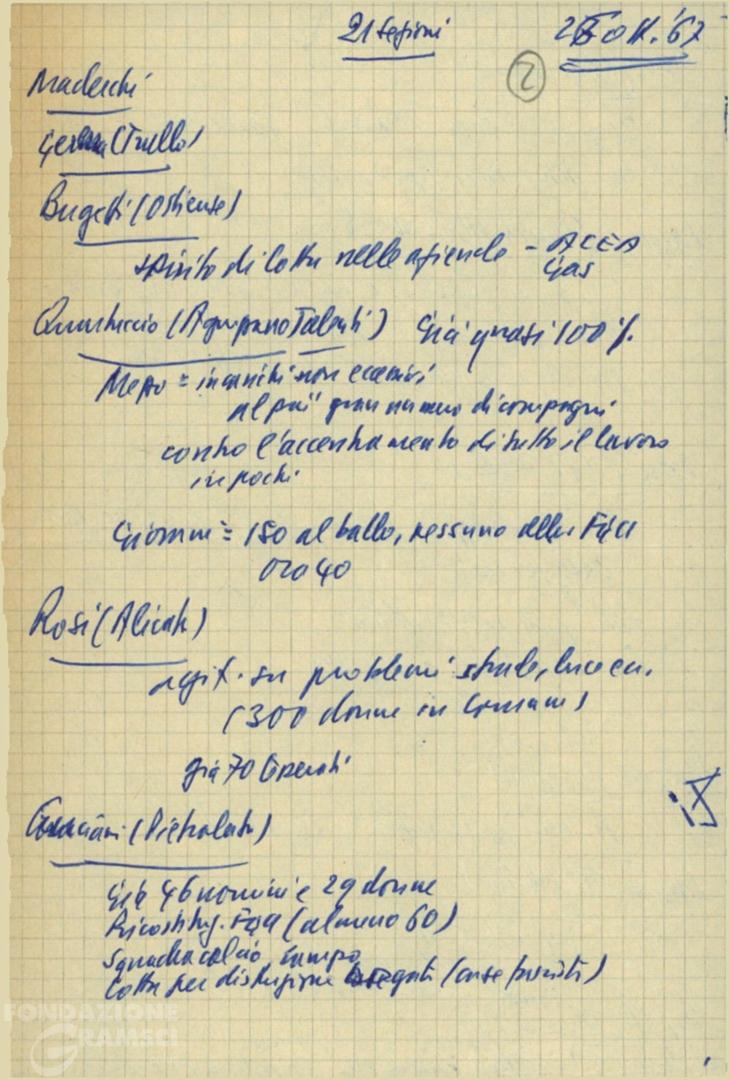 21 sezioni
2
Ott. '67
Maderchi
(Trullo)
Bugetti (Ostiense)
spirito di lotta nelle aziende - ACEA
Gas
Quattruccio (Agro Romano Talenti) Già quasi 100%
Metro = incarichi non eccessivi
al più gran numero di compagni
contro l'accentramento di tutto il lavoro
in pochi
Giovani = 150 al ballo, nessuno della Fgci
ora 40
Rosi (Alicata)
agit. su problemi strade, luce ecc.
(300 donne in Comune)
già 70 tesserati
(Pietralata)
Già 46 uomini e 29 donne
Ricostituz. Fgci (almeno 60)
Squadra calcio, campo
lotta per distruzione (case)
FONDAZIONE
GRAMSCI